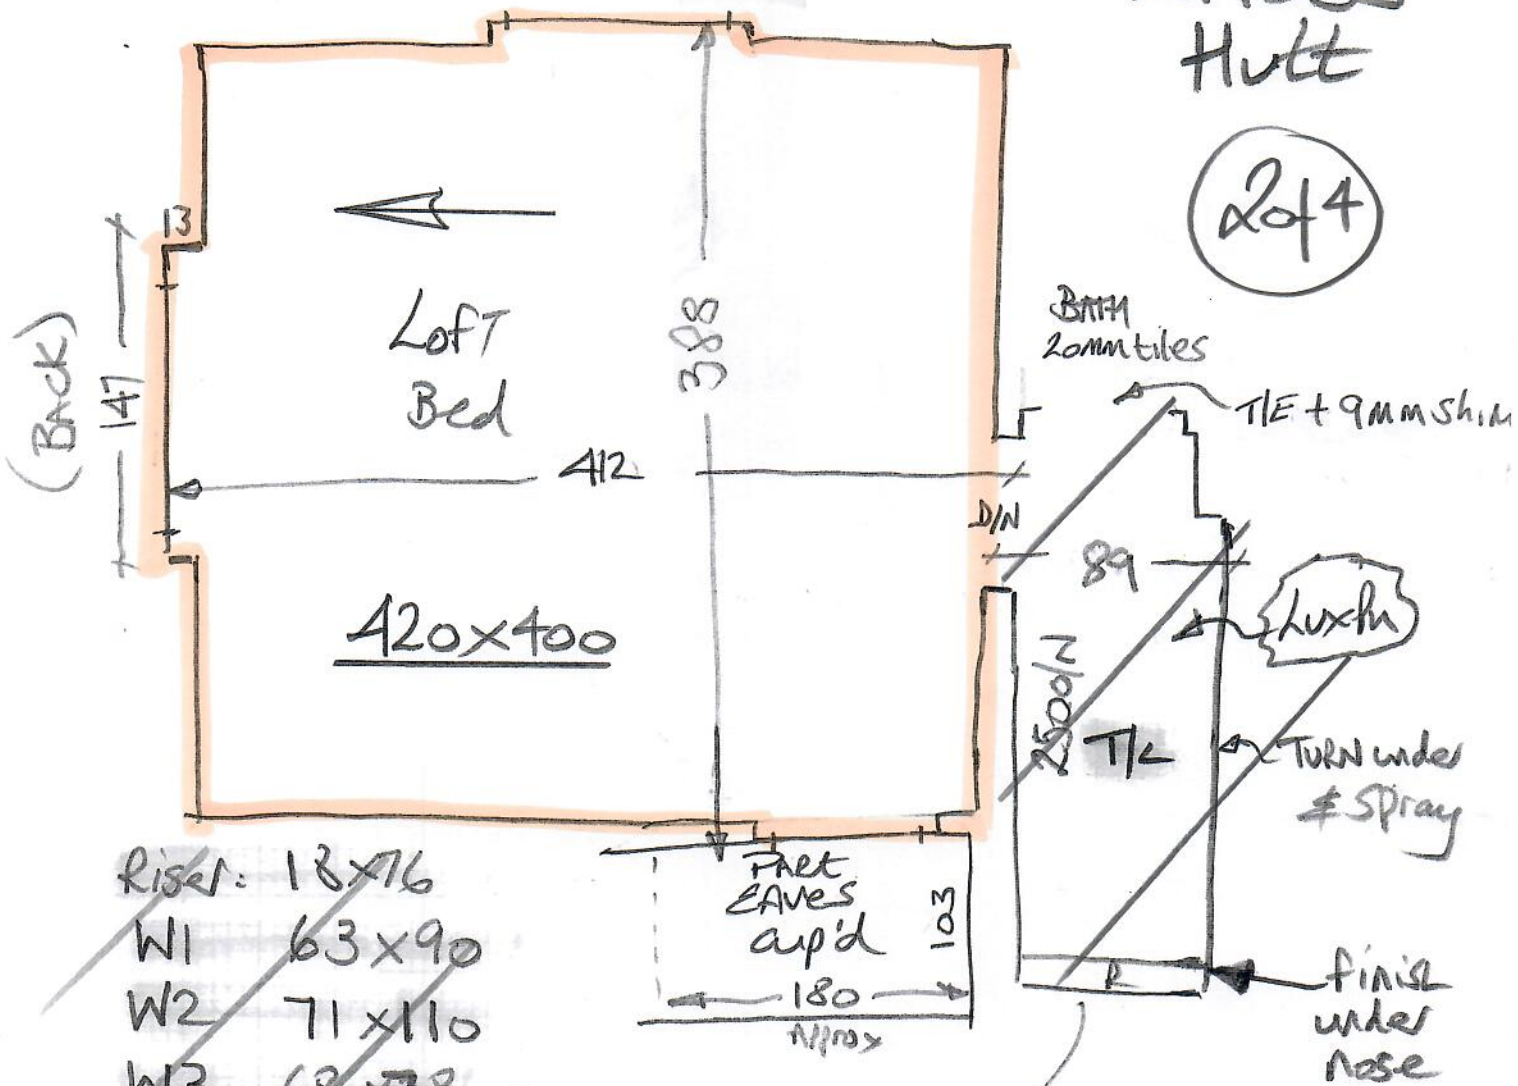 Hutt
2 of 4
13
(BACK)
147
Loft
Bed
388
412
420x400
BATH
20mm tiles
T/E + 9mm Shim
D/N
89
250 O/N
T/L
TURN under
& Spray
Riser: 18x76
W1 63x90
W2 71x110
W3
PART
EAVES
cup'd
103
180
Approx
R
finish
under
nose